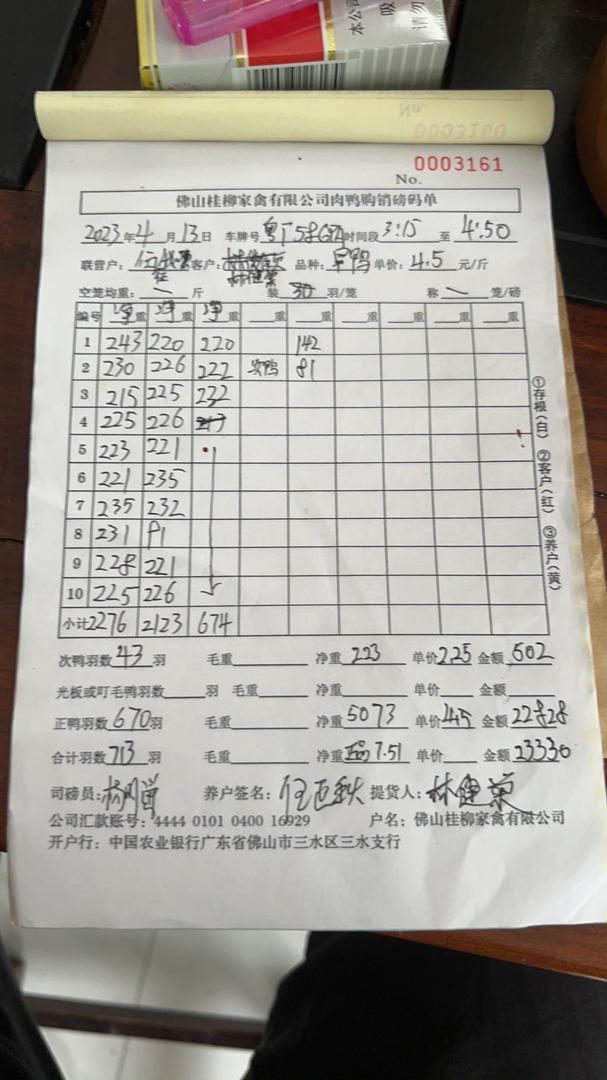 本公
吸
请勿
No.
0003160
0003161
No.
佛山桂柳家禽有限公司肉鸭购销磅码单
2023年4月13日 车牌号 粤 时间段 3:15 至 4:50
联营户: 客户: 林健荣 品种: 旱鸭 单价: 4.5 元/斤
空笼均重: 一 斤 装 30 羽/笼 称 一 笼/磅
编号 净重 净重 净重 重 重 重 重 重
1 243 220 220 142
2 230 226 222 次鸭 81
3 215 225 232
4 225 226 217
5 223 221
6 221 235
7 235 232
8 231 91
9 228 221
10 225 226
小计 2276 2123 674
次鸭羽数 43 羽 毛重 净重 223 单价 2.25 金额 502
光板或叮毛鸭羽数 羽 毛重 净重 单价 金额
正鸭羽数 670 羽 毛重 净重 5073 单价 4.5 金额 22828
合计羽数 713 羽 毛重 净重 7.51 单价 金额 23330
司磅员: 养户签名: 提货人: 林健荣
公司汇款账号: 4444 0101 0400 16929 户名: 佛山桂柳家禽有限公司
开户行: 中国农业银行广东省佛山市三水区三水支行
①存根(白) ②客户(红) ③养户(黄)